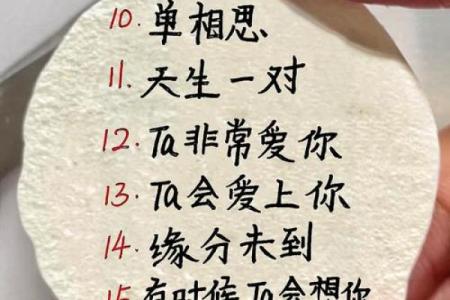 10. 单相思
11. 天生一对
12. Ta非常爱你
13. Ta会爱上你
14. 缘分未到
15 有时候Ta会想你